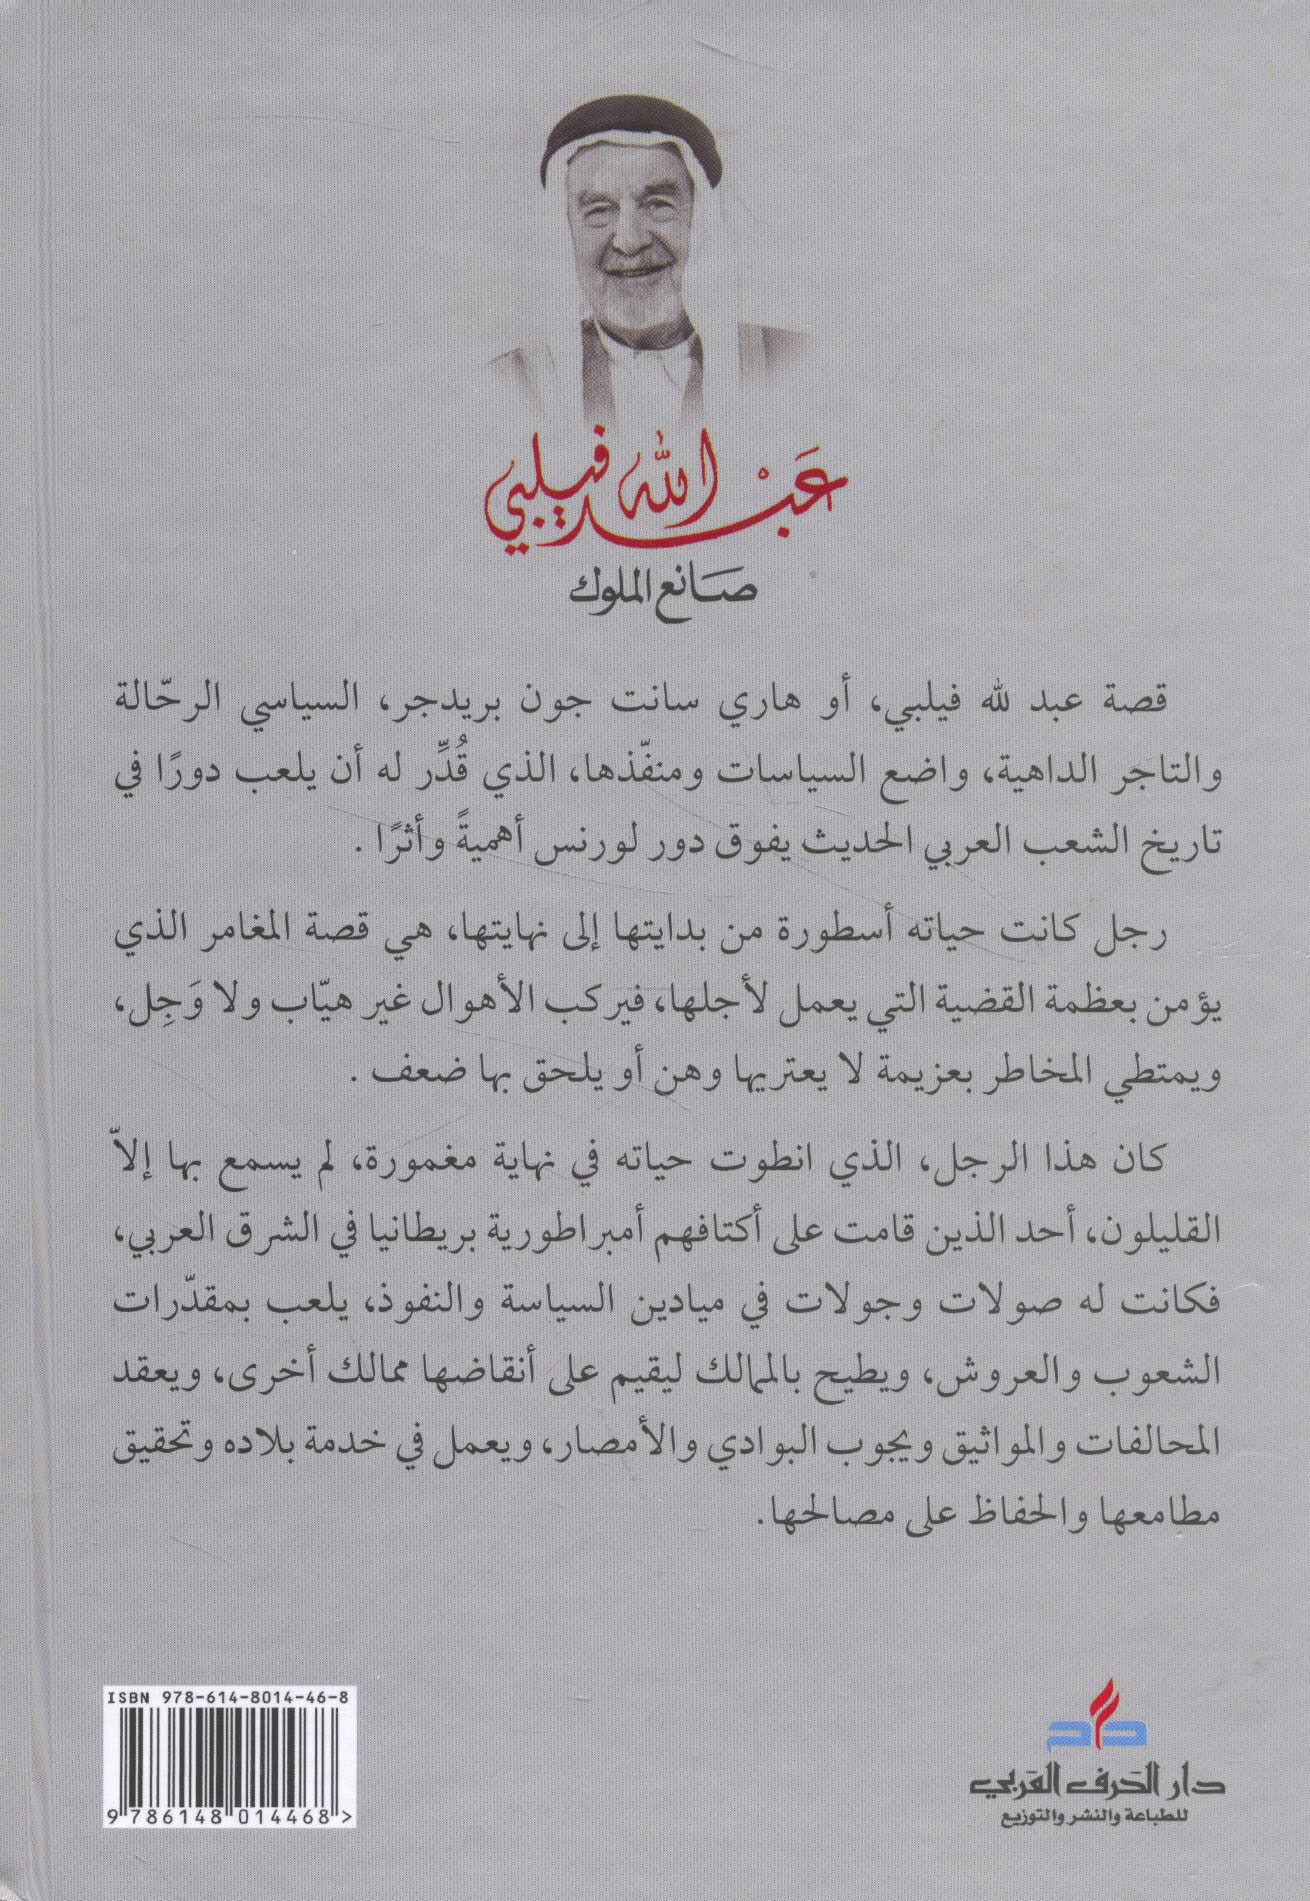 عَبْد الله فيلبي
صَانع الملوك
قصة عبد لله فيلبي، أو هاري سانت جون بريدجر، السياسي الرحّالة
والتاجر الداهية، واضع السياسات ومنفّذها، الذي قُدِّر له أن يلعب دورًا في
تاريخ الشعب العربي الحديث يفوق دور لورنس أهميةً وأثرًا .
رجل كانت حياته أسطورة من بدايتها إلى نهايتها، هي قصة المغامر الذي
يؤمن بعظمة القضية التي يعمل لأجلها، فيركب الأهوال غير هيّاب ولا وَجِل،
ويمتطي المخاطر بعزيمة لا يعتريها وهن أو يلحق بها ضعف .
كان هذا الرجل، الذي انطوت حياته في نهاية مغمورة، لم يسمع بها إلاّ
القليلون، أحد الذين قامت على أكتافهم أمبراطورية بريطانيا في الشرق العربي،
فكانت له صولات وجولات في ميادين السياسة والنفوذ، يلعب بمقدّرات
الشعوب والعروش، ويطيح بالممالك ليقيم على أنقاضها ممالك أخرى، ويعقد
المحالفات والمواثيق ويجوب البوادي والأمصار، ويعمل في خدمة بلاده وتحقيق
مطامعها والحفاظ على مصالحها.
ISBN 978-614-8014-46-8
9 786148 014468 >
دار الحَرف العَربي
للطباعة والنشر والتوزيع